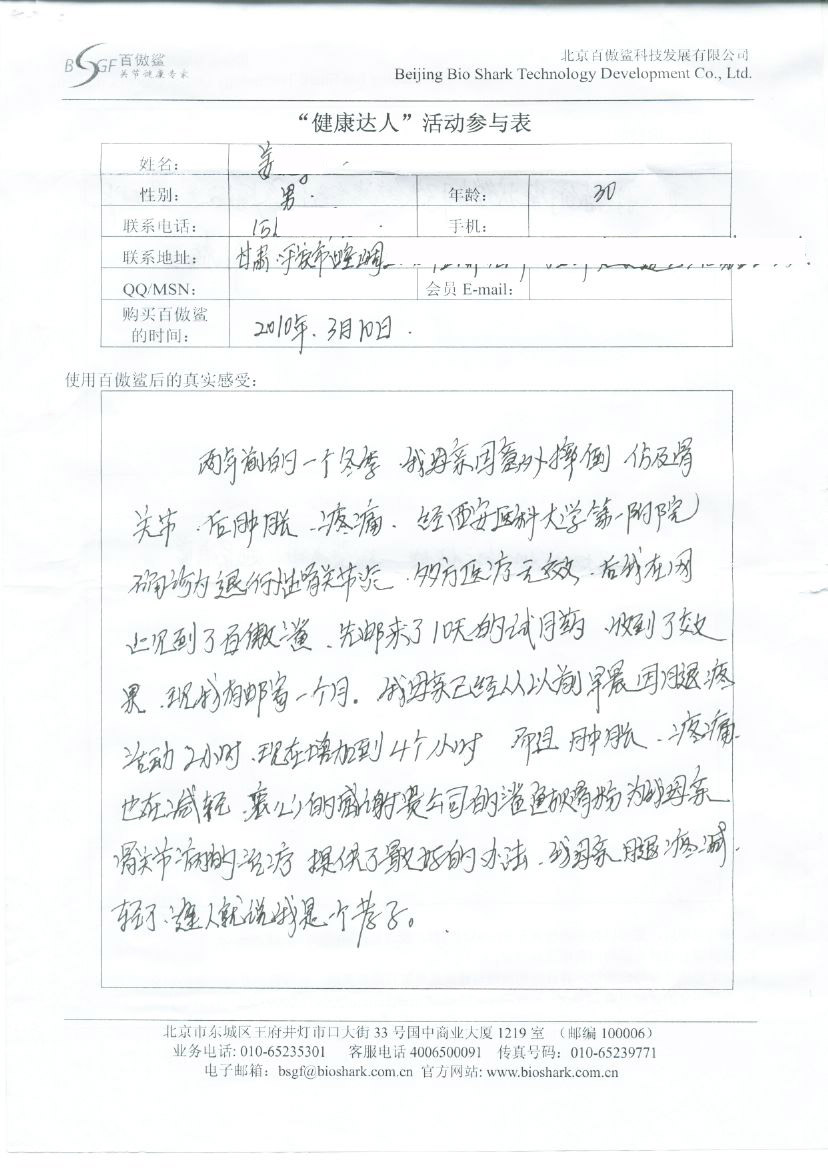 BSGF 百傲鲨
关节健康专家
北京百傲鲨科技发展有限公司
Beijing Bio Shark Technology Development Co., Ltd.
“健康达人”活动参与表
姓名： 姜
性别： 男 年龄： 30
联系电话： 151 手机：
联系地址： 甘肃 平凉市崆峒
QQ/MSN： 会员 E-mail：
购买百傲鲨
的时间： 2010年.3月10日.
使用百傲鲨后的真实感受：
两年前的一个冬季 我母亲因意外摔倒 伤及骨
关节.后肿胀.疼痛.经西安医科大学第一附院
确诊为退行性骨关节炎.多方医疗无效.后我在网
上见到了百傲鲨.先邮来了10天的试用药.收到了效
果.现我有邮寄一个月。我母亲已经从以前早晨因腿疼
活动2小时.现在增加到4个小时 而且肿胀.疼痛
也在减轻.衷心的感谢贵公司的鲨鱼软骨粉为我母亲
骨关节病的治疗 提供了最好的办法.我母亲腿疼减
轻了.逢人就说我是个孝子。
北京市东城区王府井灯市口大街 33 号国中商业大厦 1219 室 （邮编 100006）
业务电话: 010-65235301 客服电话 4006500091 传真号码： 010-65239771
电子邮箱： bsgf@bioshark.com.cn 官方网站: www.bioshark.com.cn